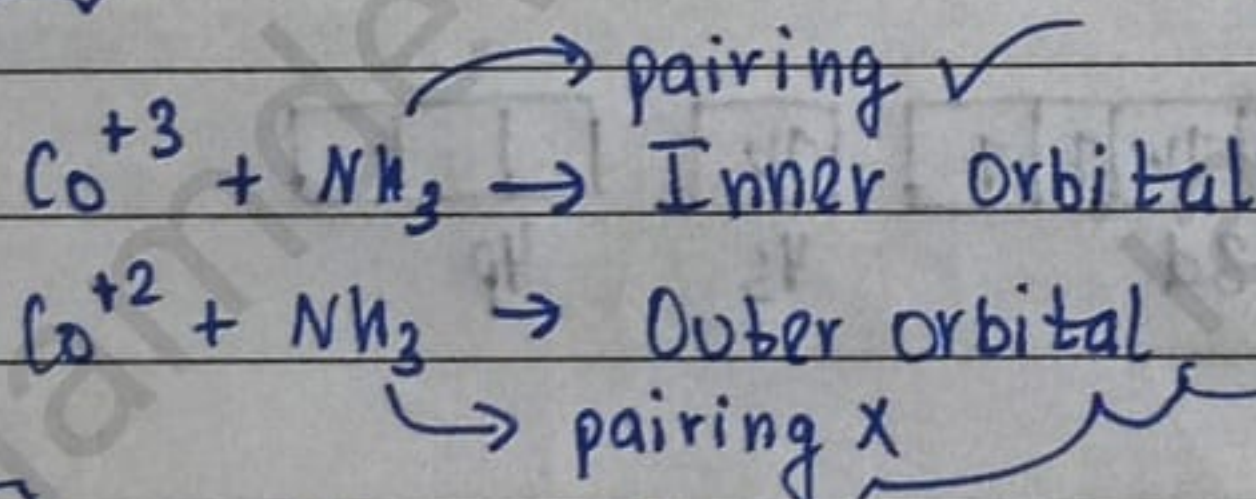 → pairing ✓
Co⁺³ + NH₃ → Inner orbital
Co⁺² + NH₃ → Outer orbital
→ pairing x